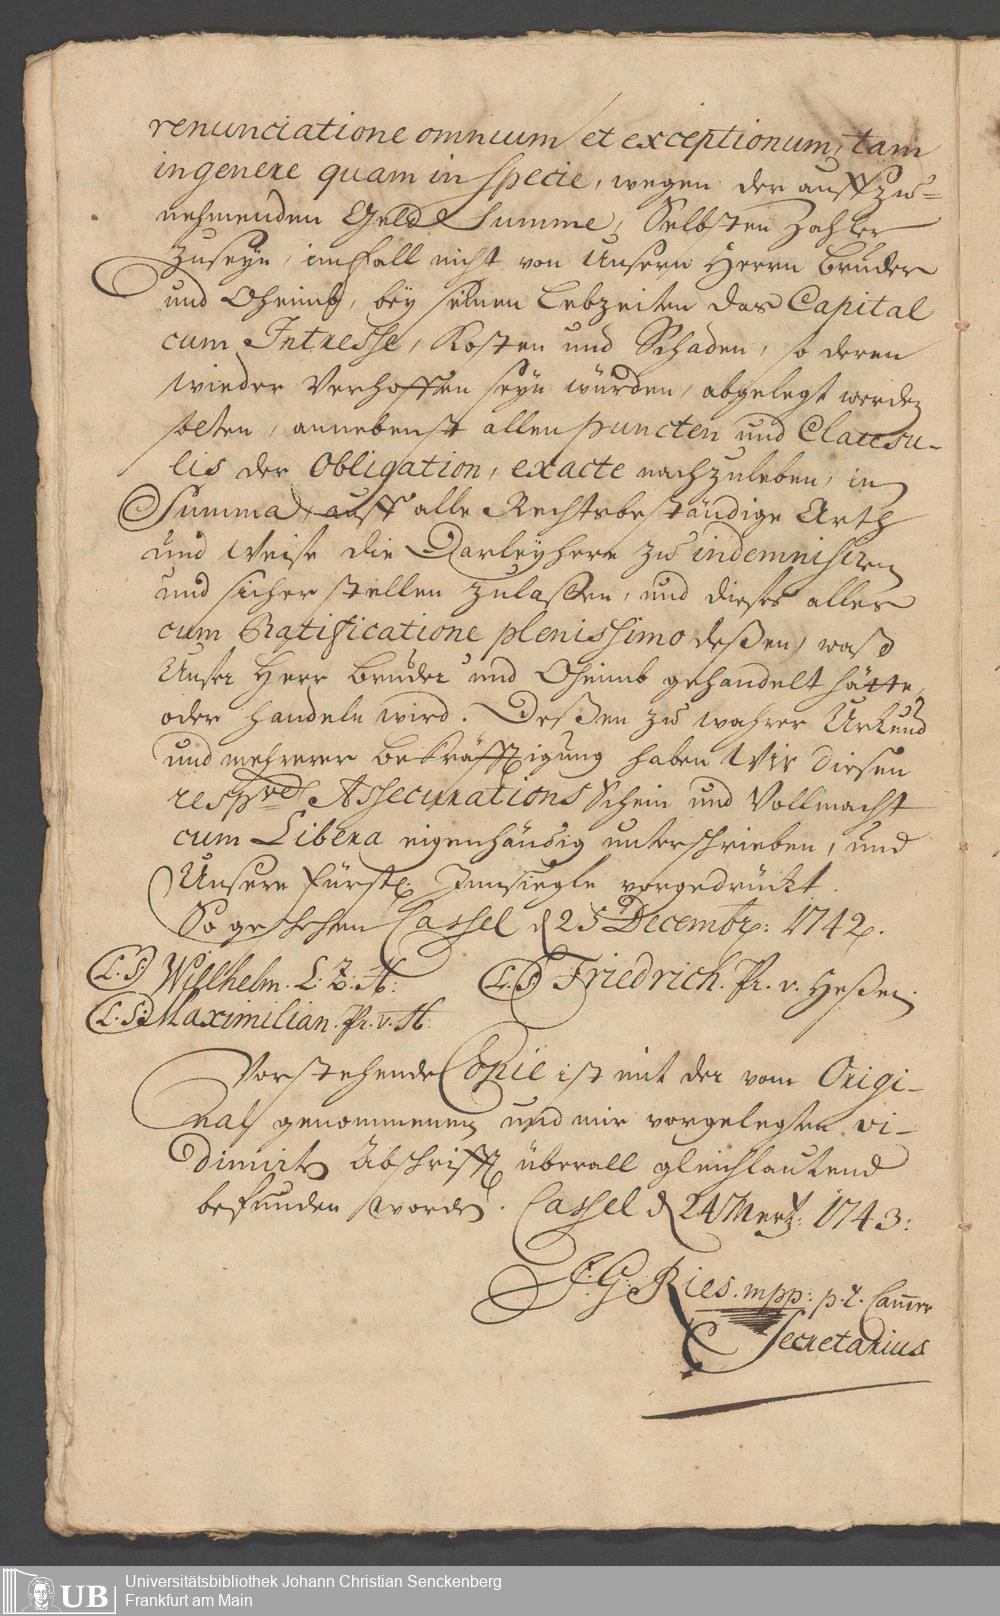 renunciatione omnium et exceptionum, tam
in genere quam in specie, wegen der auffzu-
nehmenden Geld Summe, Selbsten Zahler
zuseyn, imfall nicht von Unserm Herrn Bruder
und Oheimb, bey seinen Lebzeiten das Capital
cum Intresse, Kosten und Schaden, so deren
wieder Verhoffen seyn würden, abgelegt werden
solten, annebenst allen puncten und Clausu-
lis der Obligation, exacte nachzuleben, in
Summa, auff alle Rechtsbeständige Arth
und Weise die Darleyhere zu indemnisiren
und sicher stellen zulaßen, und dieses alles
cum Ratificatione plenissimo deßen, waß
Unser Herr Bruder und Oheimb gehandelt hätte,
oder handeln wird. Deßen zu wahrer Urkund
und mehrerer Bekräfftigung haben Wir diesen
respvè Assecurations Schein und Vollmacht
cum Libera eigenhändig unterschrieben, und
Unsere Fürstl. Innsiegle vorgedrückt.
So geschehen Cassel d 25 Decembr: 1742.
(L.S) Willhelm. L. Z. H: (L.S) Friedrich. Pr. v. Heßen.
(L.S.) Maximilian. Pr. v. H:
Vorstehende Copie ist mit der vom Origi-
nal genommenen und mir vorgelegten vi-
dimirten Abschrifft überall gleichlautend
befunden worden. Cassel d 24 Mertz: 1743:
J. G. Ries. mpp: p. t. Cammer
Secretarius
UB Universitätsbibliothek Johann Christian Senckenberg
Frankfurt am Main